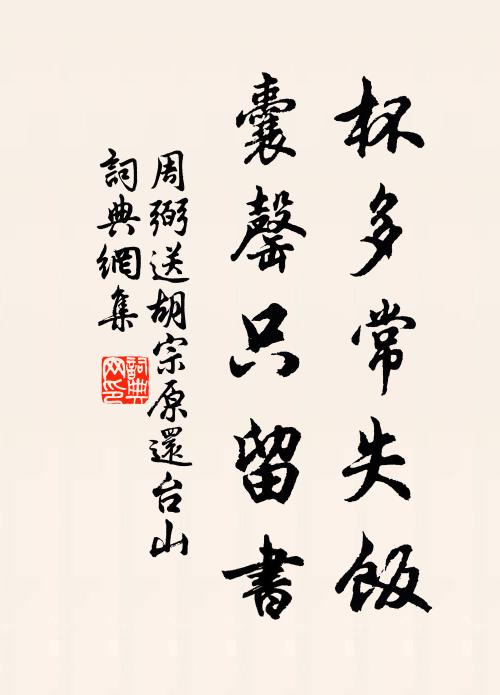 杯多常失飯
囊罄只留書
周弼送胡宗原還台山
詞典網集
詞典網印